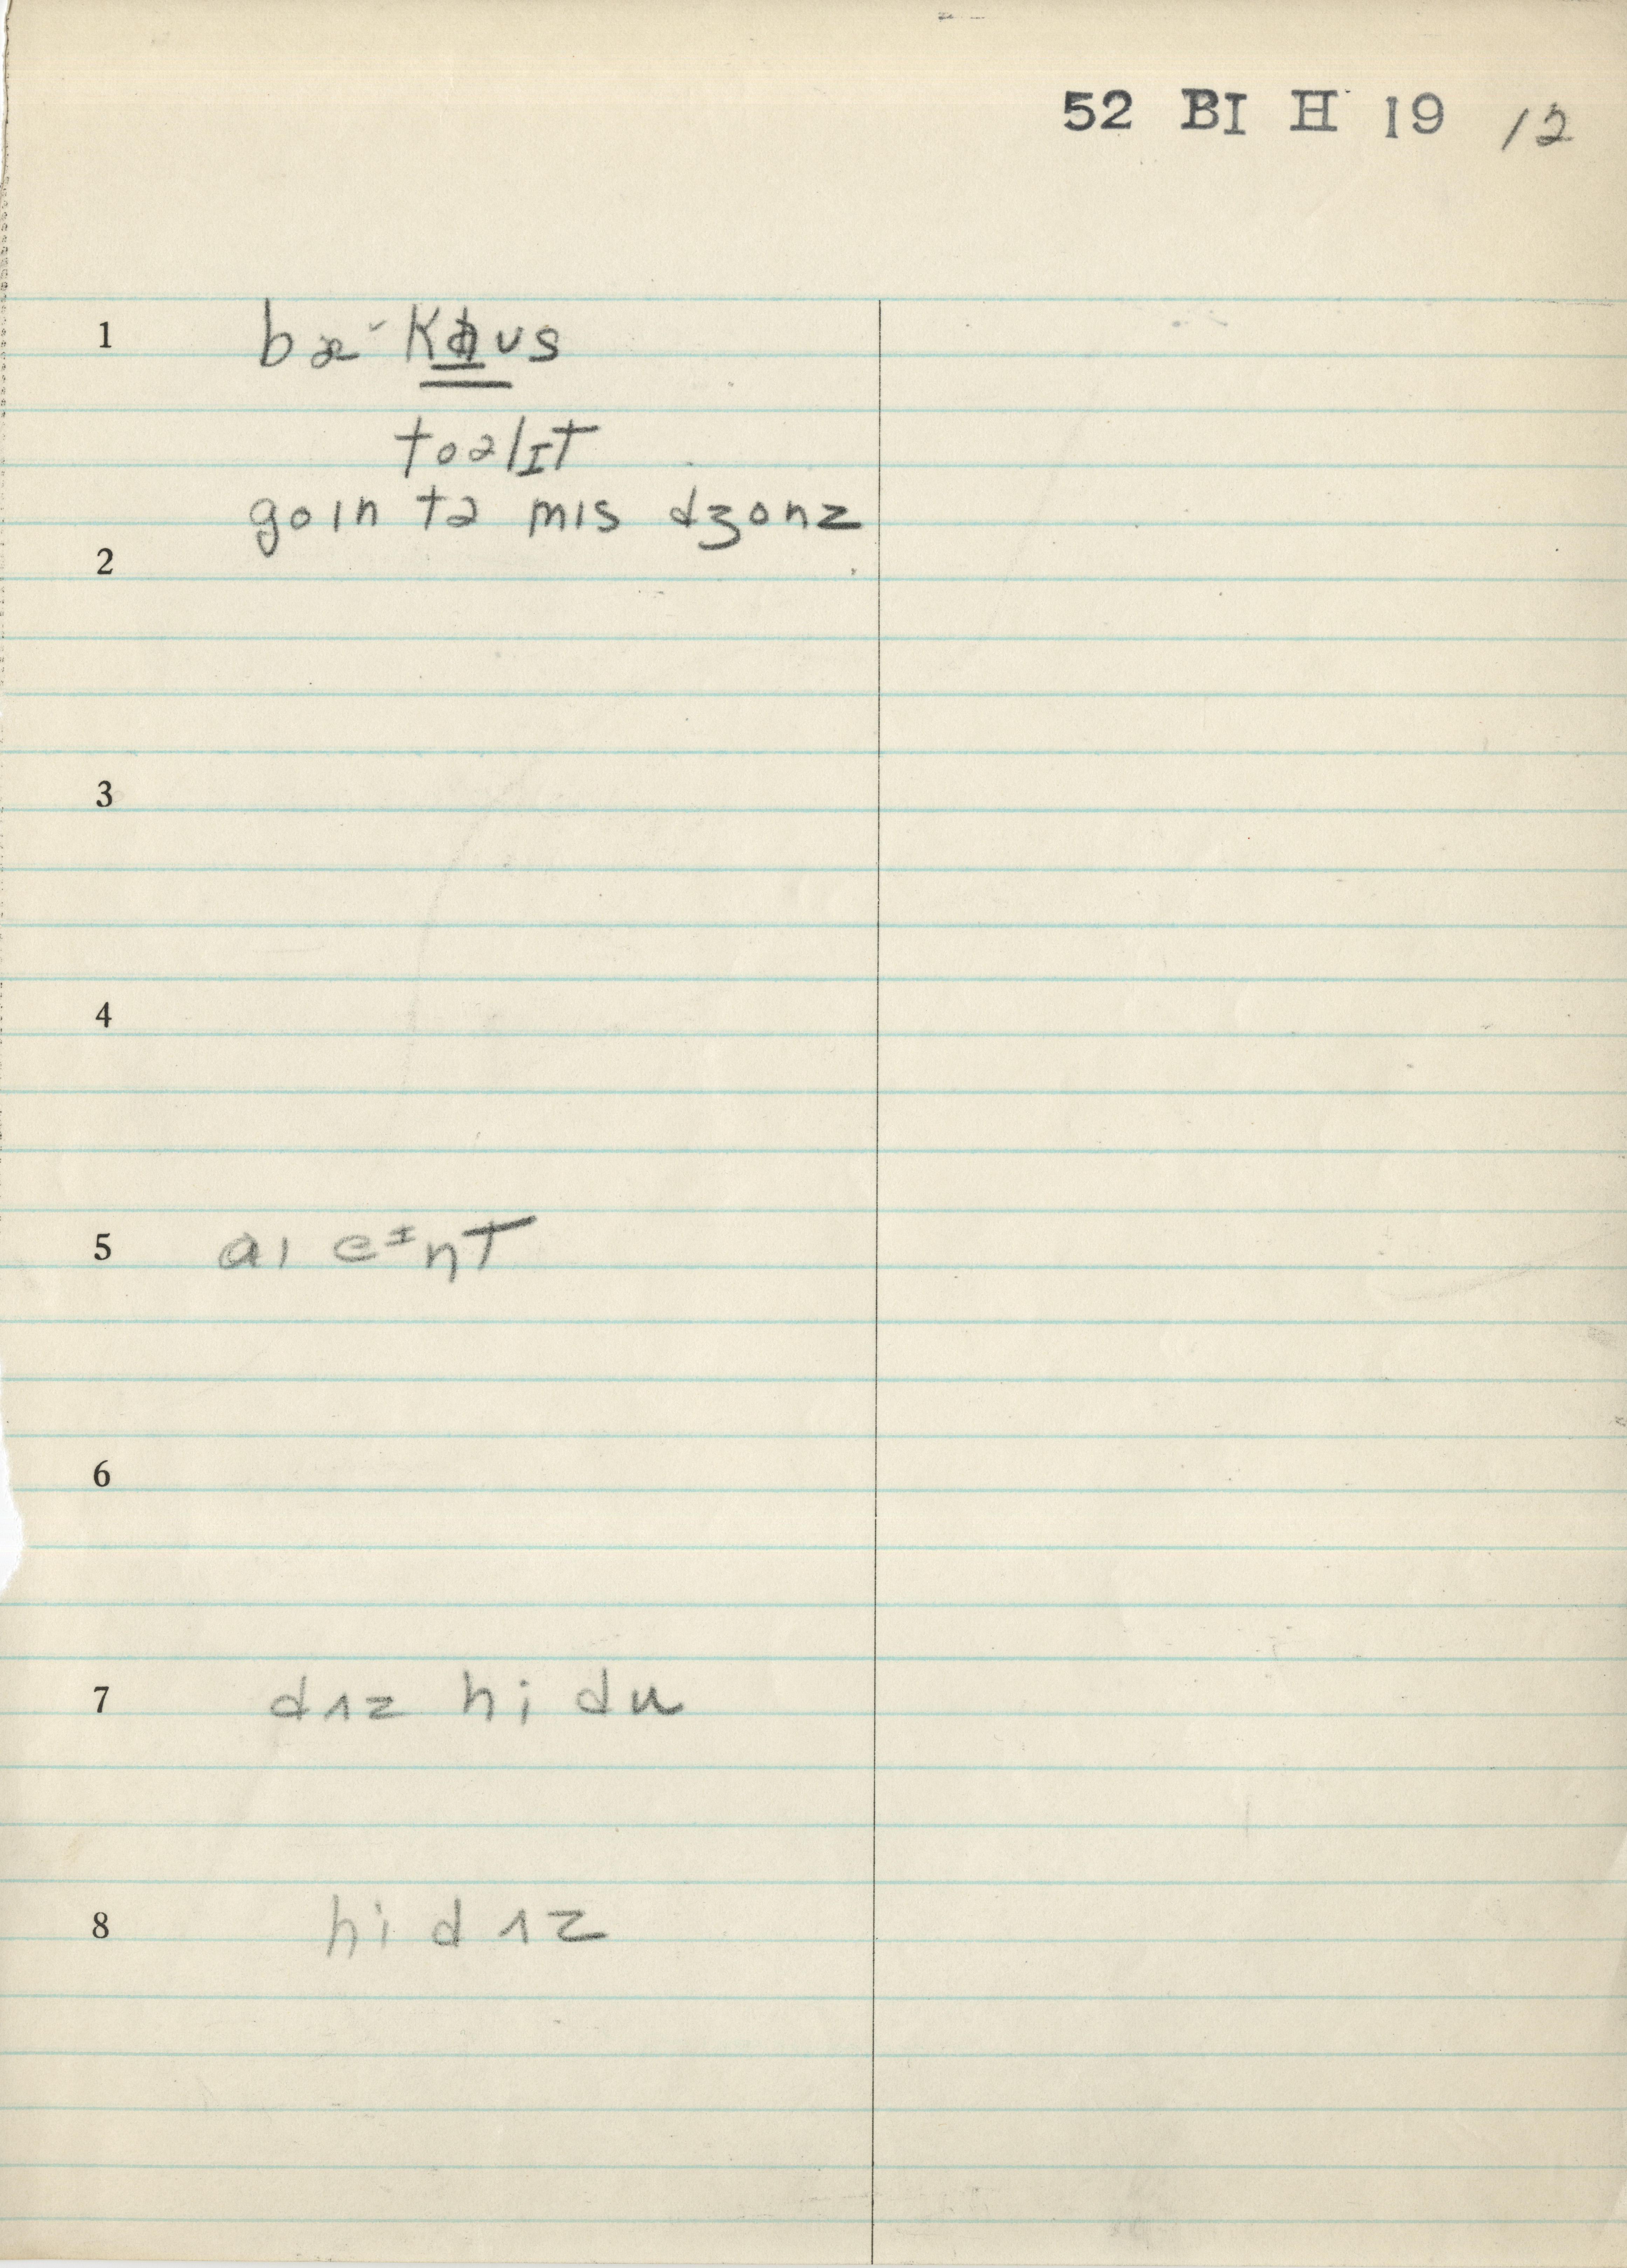 52 BI H 19 12
1 bæ˘ Kaus
toəlIT
goin tə mis dʒonz
2
3
4
5 aɪ eᴵnT
6
7 dʌz hi du
8 hi dʌz